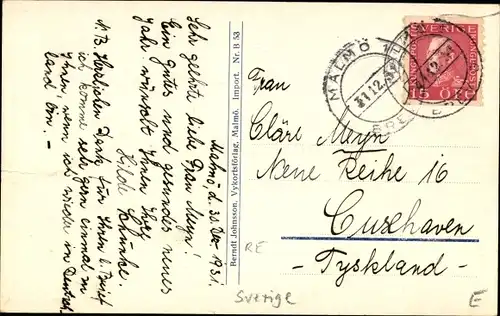 Malmö, d. 30. Dez. 1931.
Sehr geehrte liebe Frau Meyn!
Ein gutes und gesundes neues
Jahr wünscht Ihnen Ihre
Hilde
N.B. Herzlichen Dank für Ihren l. Brief
ich komme sehr gern einmal zu
Ihnen, wenn ich wieder in Deutsch
land bin. -
Berndt Johnsson, Vykortsförlag, Malmö. Import. Nr. B 53
MALMÖ 1
31.12.31
SVERIGE
15 ÖRE
Frau
Cläre Meyn
Neue Reihe 16
Cuxhaven
- Tyskland -
RE
Sverige
E